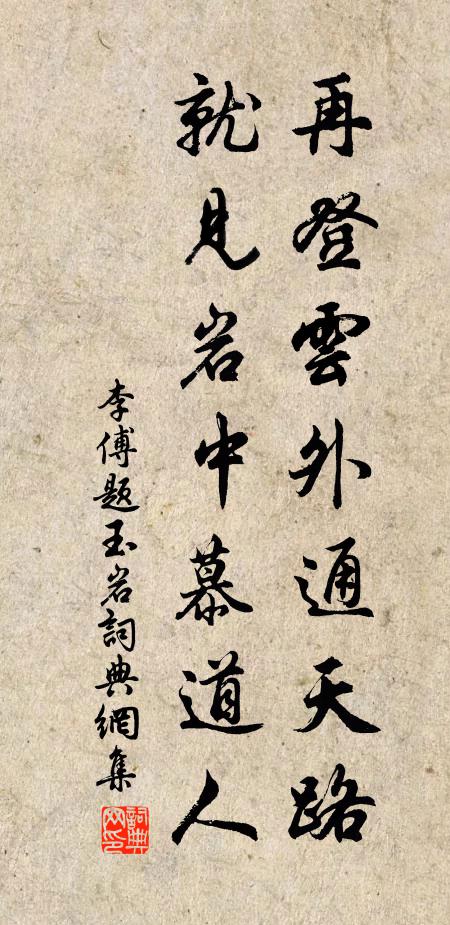 再登雲外通天路
就見岩中慕道人
李傅題玉岩詞典網集
詞典網印